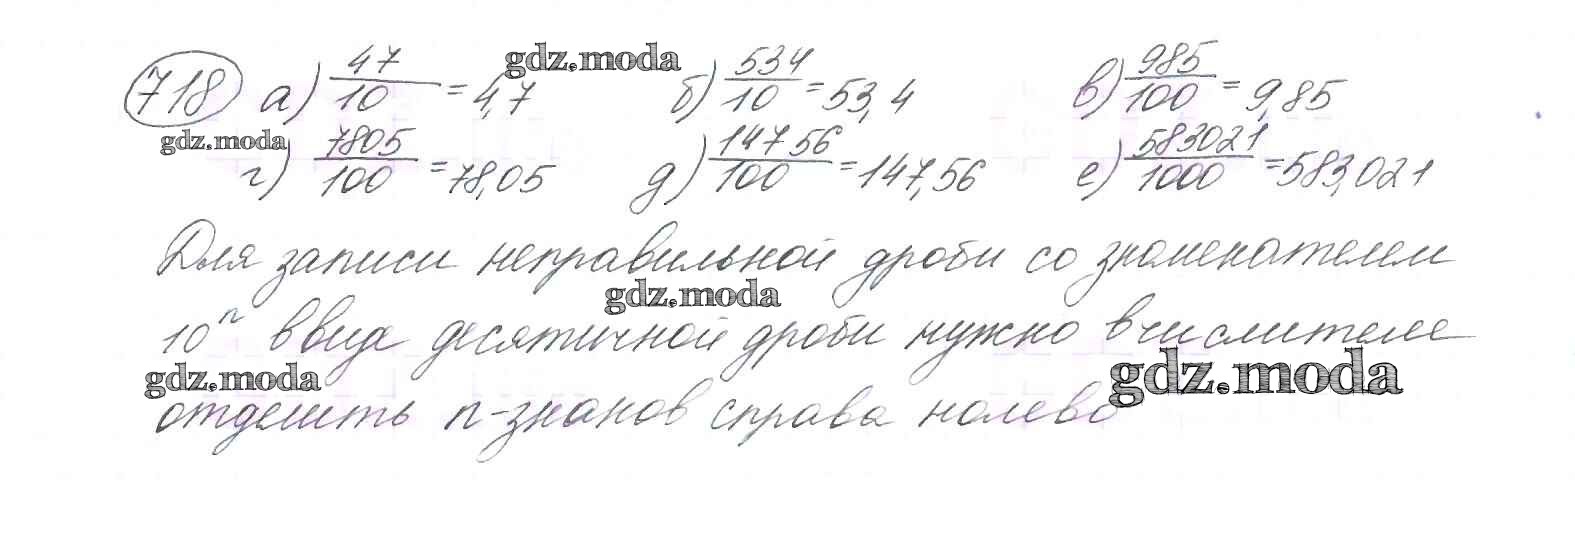 718 а) 47/10 = 4,7 б) 534/10 = 53,4 в) 985/100 = 9,85
г) 7805/100 = 78,05 д) 14756/100 = 147,56 е) 583021/1000 = 583,021
Для записи неправильной дроби со знаменателем
10ⁿ в виде десятичной дроби нужно в числителе
отделить n-знаков справа налево
gdz.moda
gdz.moda
gdz.moda
gdz.moda
gdz.moda